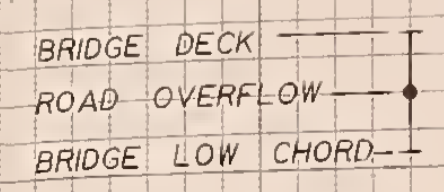 BRIDGE DECK
ROAD OVERFLOW
BRIDGE LOW CHORD